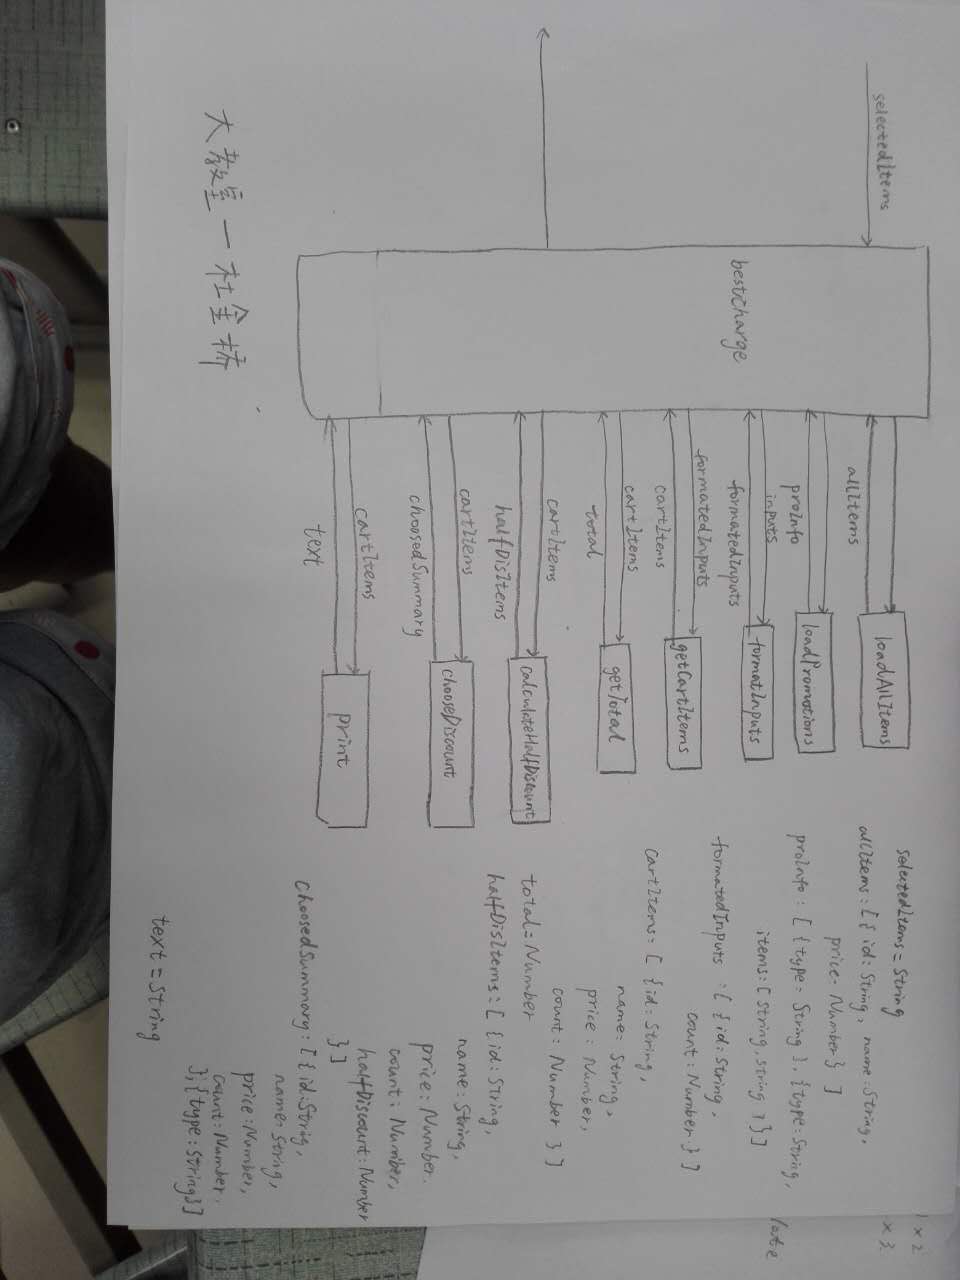 selectedItems
bestCharge
allItems
loadAllItems
proInfo
loadPromotions
inputs
formatedInputs
formatInputs
formatedInputs
cartItems
getCartItems
cartItems
total
getTotal
cartItems
halfDisItems
calculateHalfDiscount
cartItems
choosedSummary
chooseDiscount
cartItems
text
print
selectedItems = String
allItems: [ { id: String, name: String,
price: Number } ]
proInfo: [ { type: String }, { type: String,
items: [ String, String ] } ]
formatedInputs: [ { id: String,
count: Number } ]
cartItems: [ { id: String,
name: String,
price: Number,
count: Number } ]
total = Number
halfDisItems: [ { id: String,
name: String,
price: Number.
count: Number,
halfDiscount: Number
} ]
choosedSummary: [ { id: Strig,
name: String,
price: Number,
count: Number.
}, { type: String } ]
text = String
大教室一社会桥